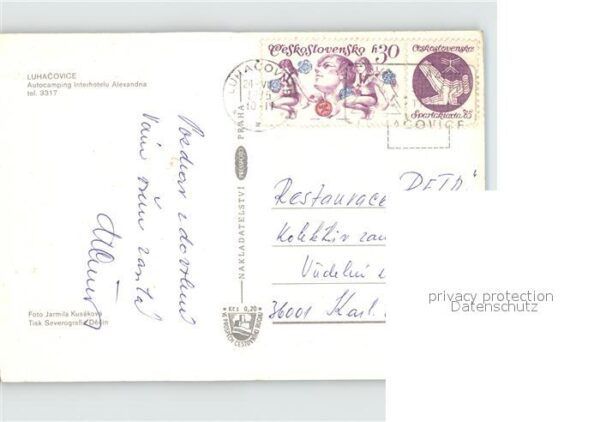 LUHAČOVICE
Autocamping Interhotelu Alexandria
tel. 3317
Pozdrav z dovolené
Vám všem zasílá
Foto Jarmila Kusáková
Tisk Severografie Děčín
NAKLADATELSTVÍ PRESSFOTO PRAHA
Kčs 0,20
Československo h30
Československo
Spartakiáda '75
LUHAČOVICE
AČOVICE
Restaurace "PETR"
Kolektiv zam
Vřídelní
36001 Karl.
privacy protection
Datenschutz